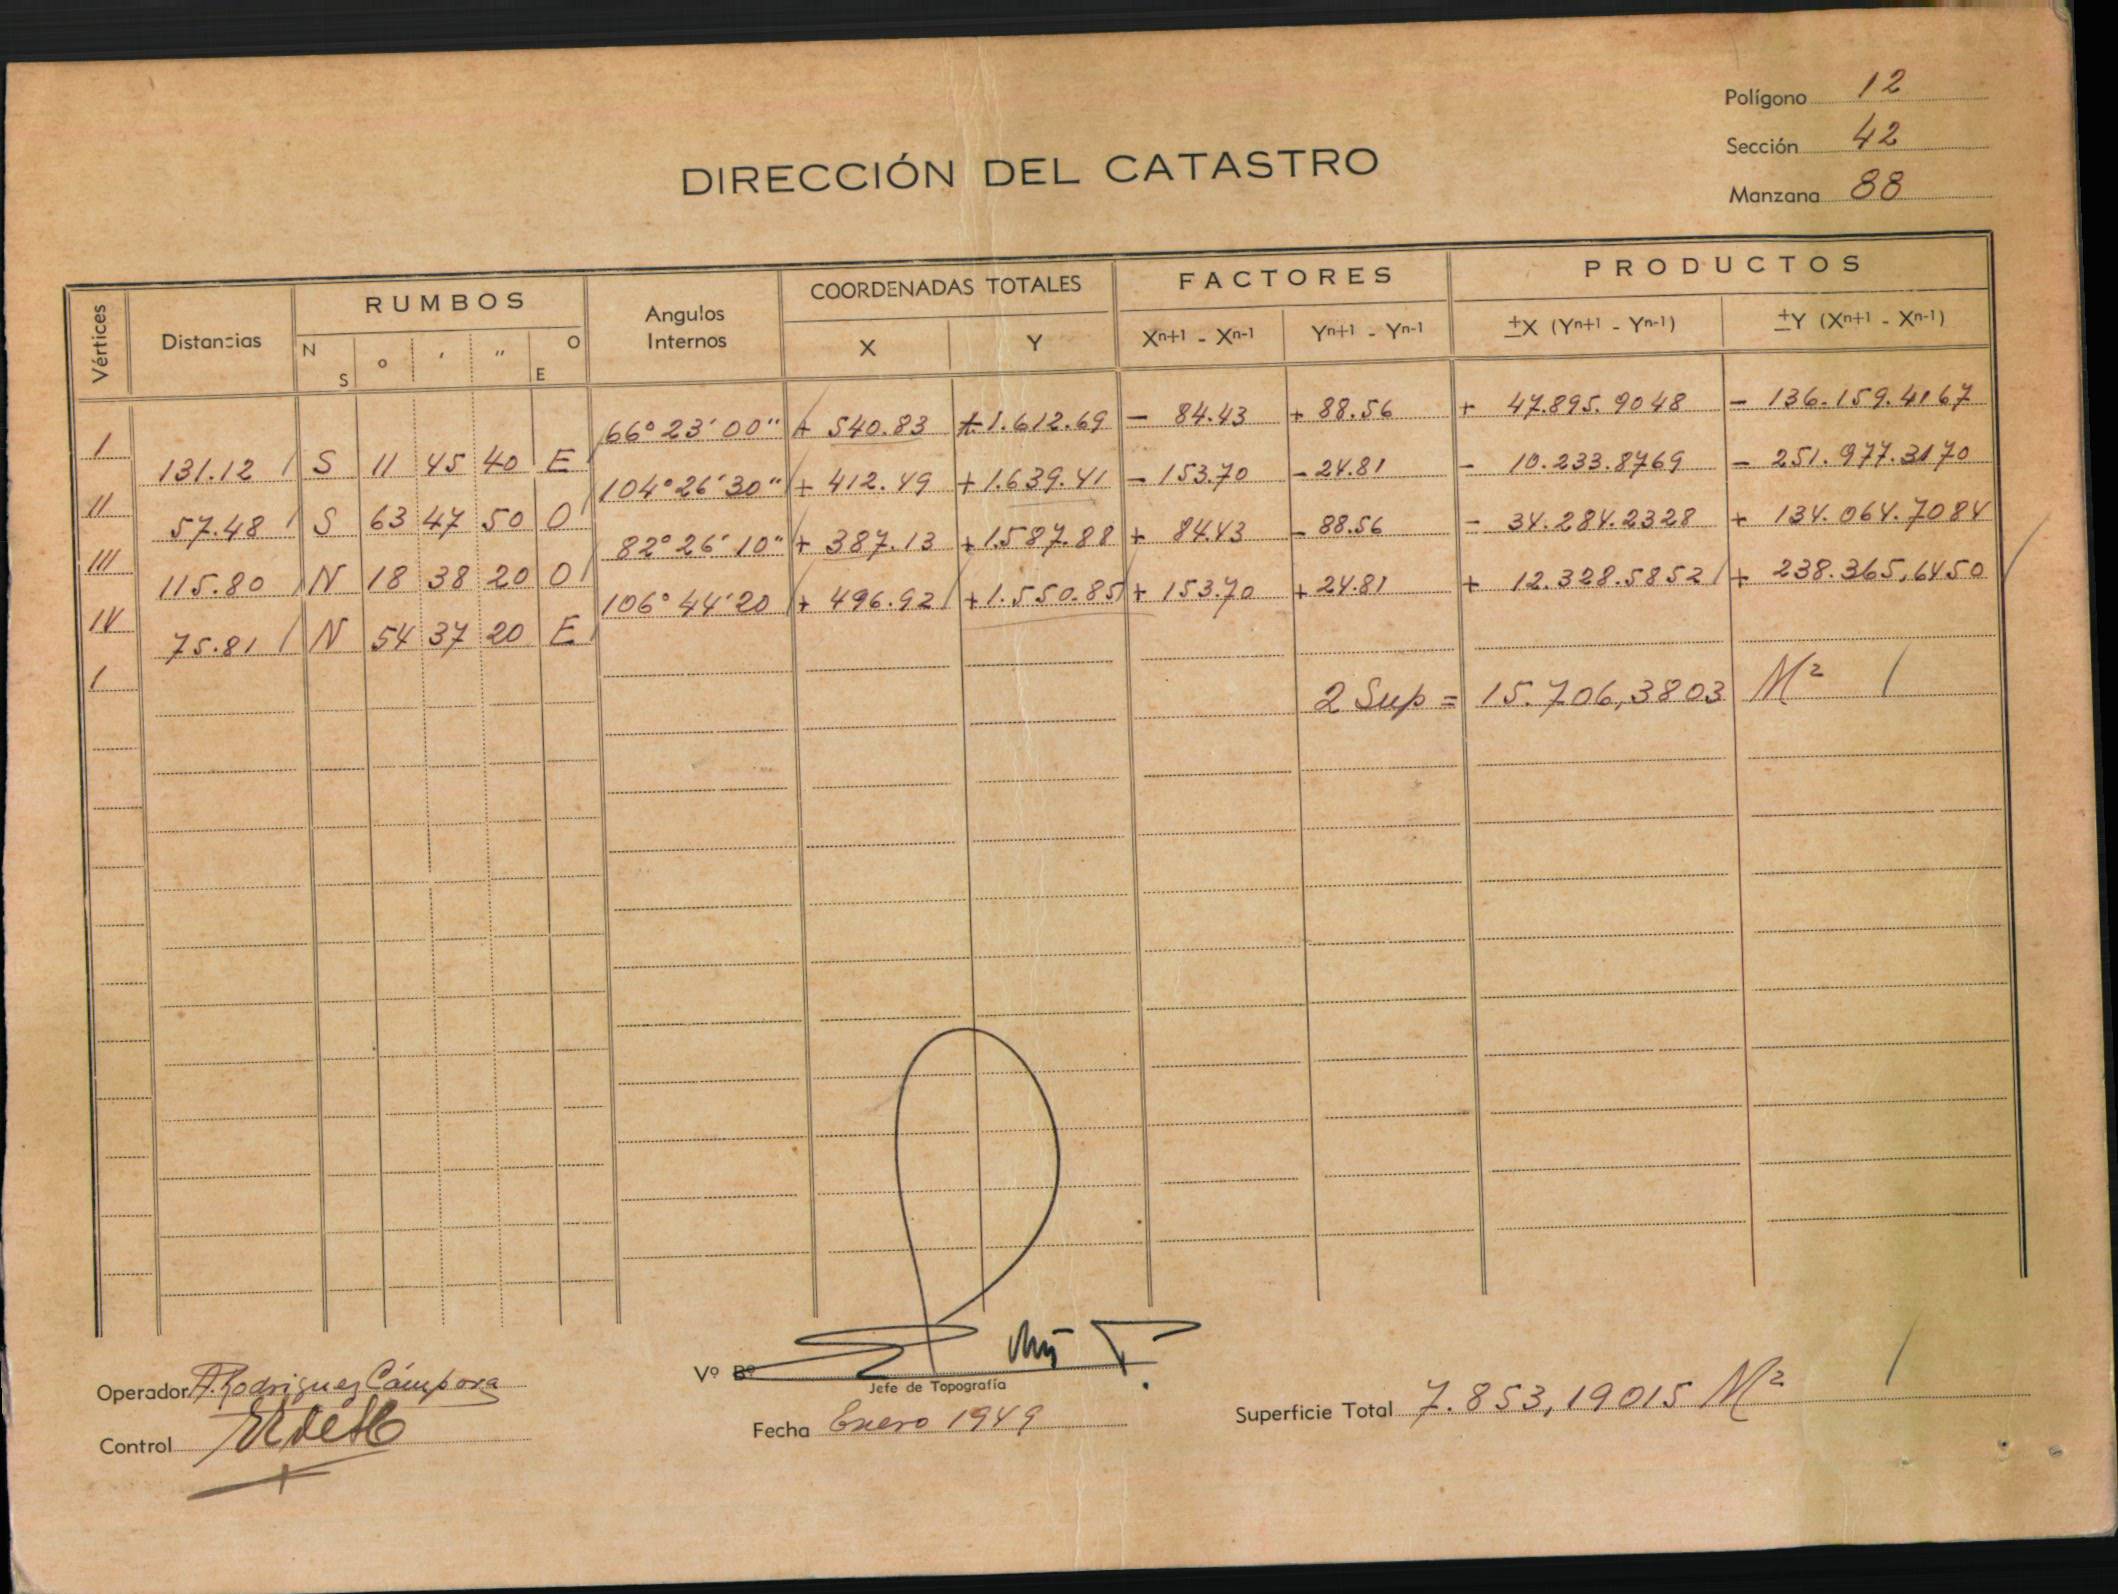 Polígono 12
Sección 42
Manzana 88
DIRECCIÓN DEL CATASTRO
Vértices Distancias RUMBOS Angulos Internos COORDENADAS TOTALES FACTORES PRODUCTOS
N S o ' " O E X Y Xn+1 - Xn-1 Yn+1 - Yn-1 ±X (Yn+1 - Yn-1) ±Y (Xn+1 - Xn-1)
I 66° 23' 00" + 540.83 + 1.612.69 - 84.43 + 88.56 + 47.895.9048 - 136.159.4167
131.12 S 11 45 40 E
II 104° 26' 30" + 412.49 + 1.639.41 - 153.70 - 24.81 - 10.233.8769 - 251.977.3170
57.48 S 63 47 50 O
III 82° 26' 10" + 387.13 + 1.587.88 + 84.43 - 88.56 - 34.284.2328 + 134.064.7084
115.80 N 18 38 20 O
IV 106° 44' 20 + 496.92 + 1.550.85 + 153.70 + 24.81 + 12.328.5852 + 238.365,6450
75.81 N 54 37 20 E
I
2 Sup = 15.706,3803 M²
Operador A. Rodriguez Cámpora
Control
Vº Bº
Jefe de Topografía
Fecha Enero 1949
Superficie Total 7.853,19015 M²